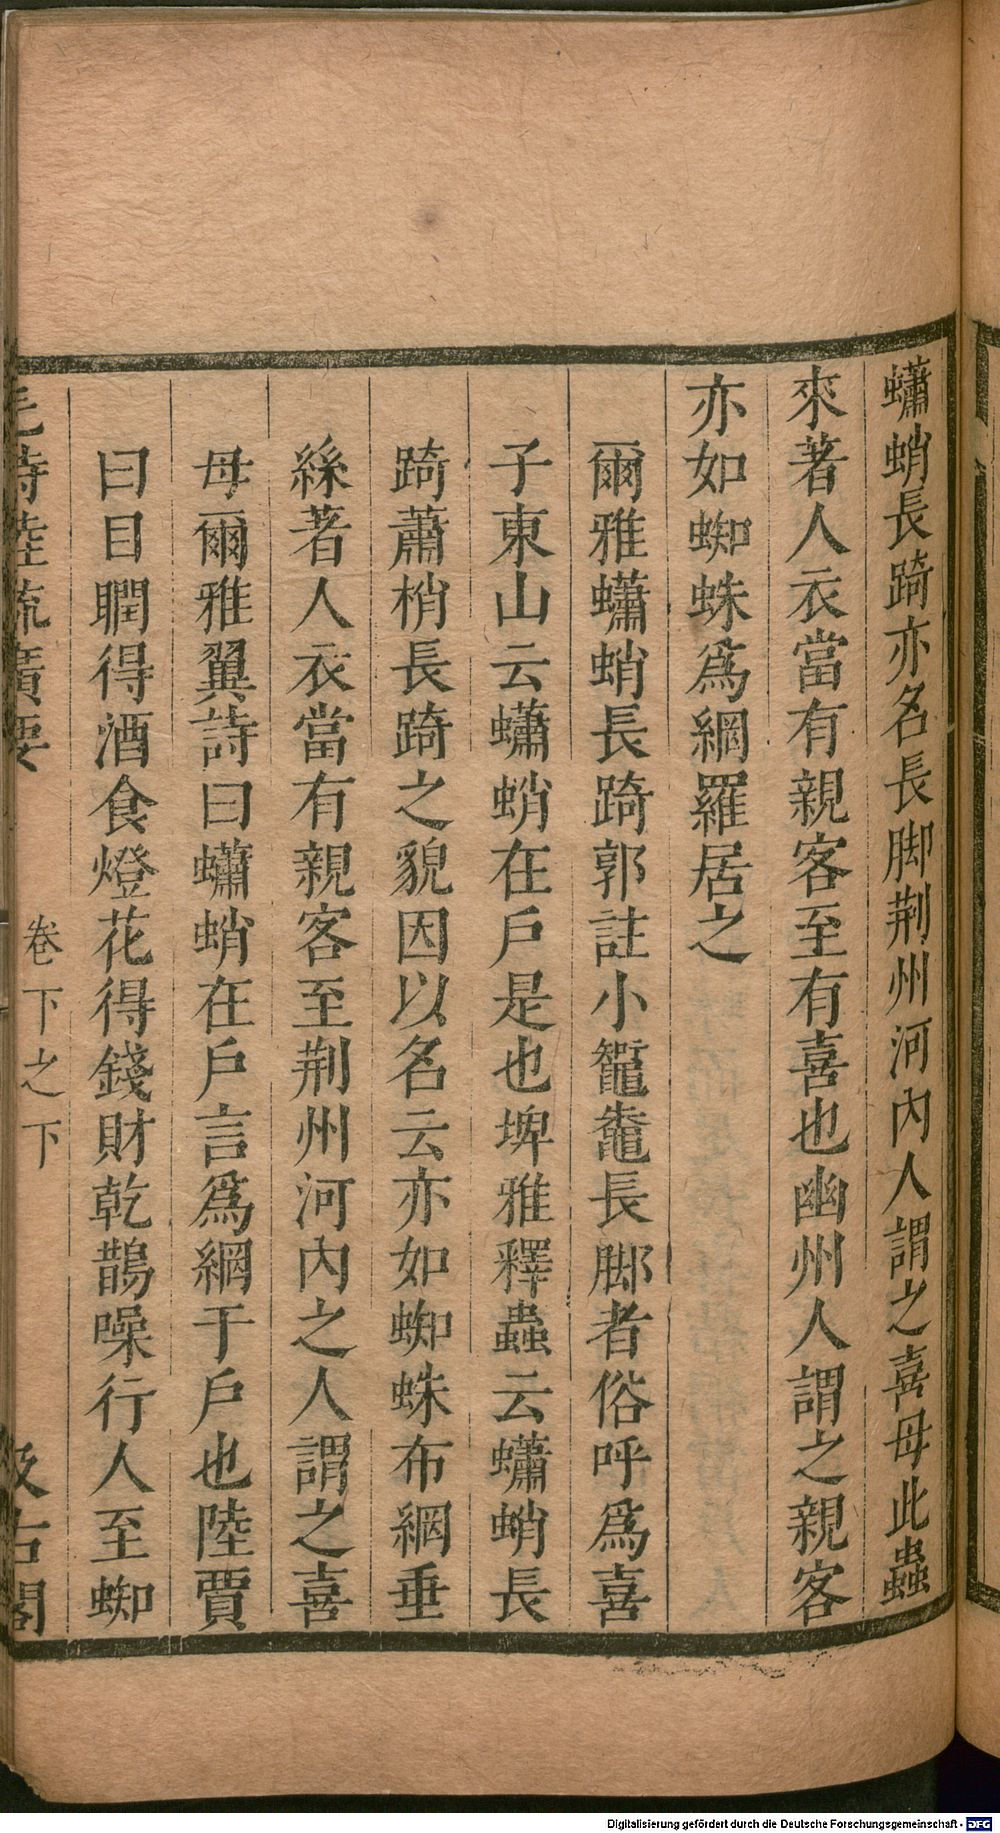 蠨蛸長踦亦名長脚荆州河內人謂之喜母此蟲
來著人衣當有親客至有喜也幽州人謂之親客
亦如蜘蛛爲網羅居之
爾雅蠨蛸長踦郭註小鼅鼄長脚者俗呼爲喜
子東山云蠨蛸在戶是也埤雅釋蟲云蠨蛸長
踦蕭梢長踦之貌因以名云亦如蜘蛛布網垂
絲著人衣當有親客至荆州河內之人謂之喜
母爾雅翼詩曰蠨蛸在戶言爲網于戶也陸賈
曰目瞤得酒食燈花得錢財乾鵲噪行人至蜘
毛詩陸疏廣要 卷下之下 汲古閣
Digitalisierung gefördert durch die Deutsche Forschungsgemeinschaft - DFG